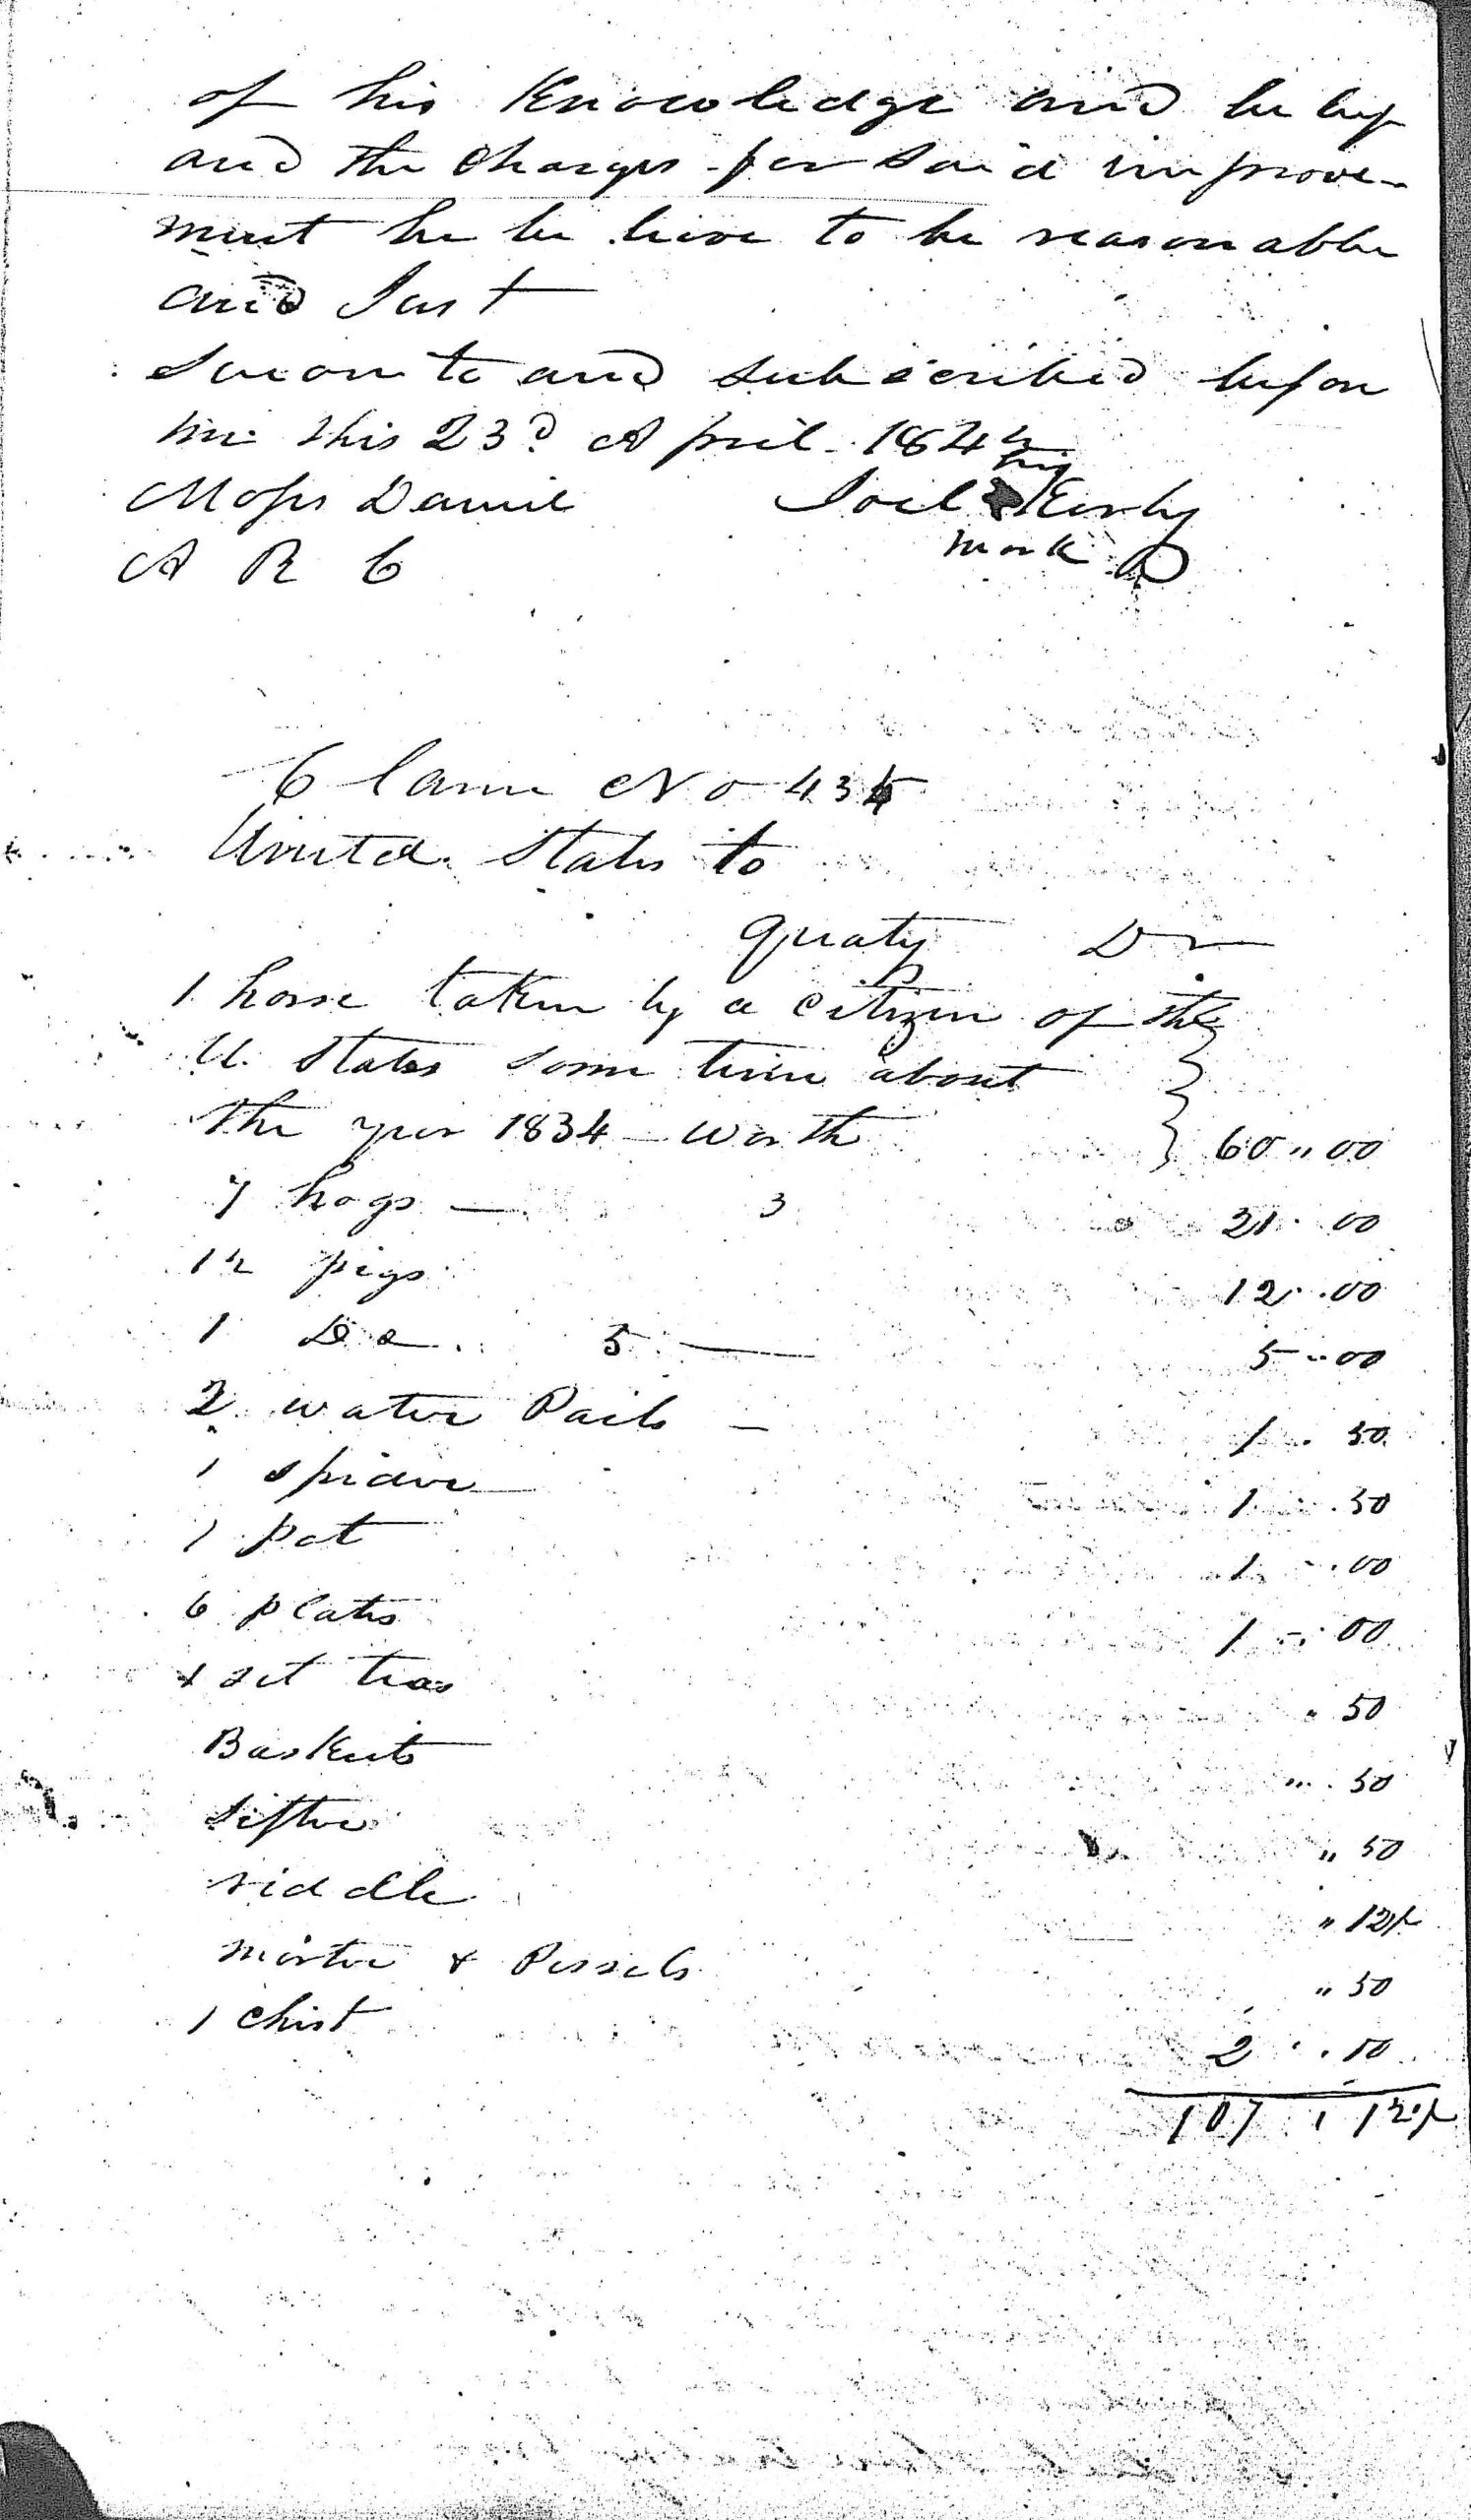 of his Knowledge and be lief
and the Charges for said improve-
ment he be lieve to be reasonable
and Just
Sworn to and subscribed before
me this 23d April 1842
his
Moses Daniel Joel Kirby
mark
A R C
Claim No 435
United States to
Quaty Dr
1 horse taken by a citizen of the
U. States some time about
the year 1834 - worth 60 .. 00
7 hogs — 3 21 .. 00
12 pigs 12 .. 00
1 Do 5 — 5 .. 00
2 water Pails — 1 .. 50
1 spider 1 .. 50
1 pot 1 .. 00
6 plates 1 .. 00
1 set teas " 50
Baskets " 50
Sifter " 50
riddle " 12½
morter & Pessels " 50
1 chest 2 .. 50
107 . 12½